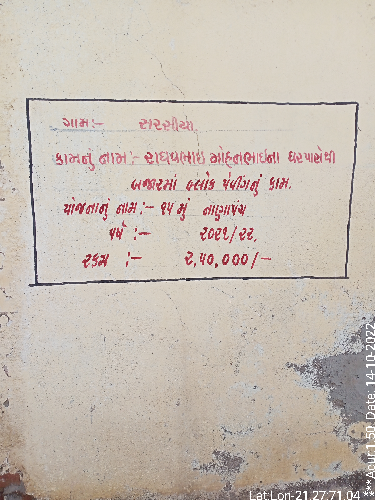 ગામ:- સરસીયા
કામનું નામ:- રાઘવભાઇ મોહનભાઇના ઘરપાસેથી
બજારમાં બ્લોક પેવીંગનું કામ.
યોજનાનું નામ:- ૧૫ મું નાણાપંચ
વર્ષ :- ૨૦૨૧/૨૨
રકમ :- ૨,૫૦,૦૦૦/-
Lat:Lon-21.27:71.04
***Acur:1.50, Date: 14-10-2022